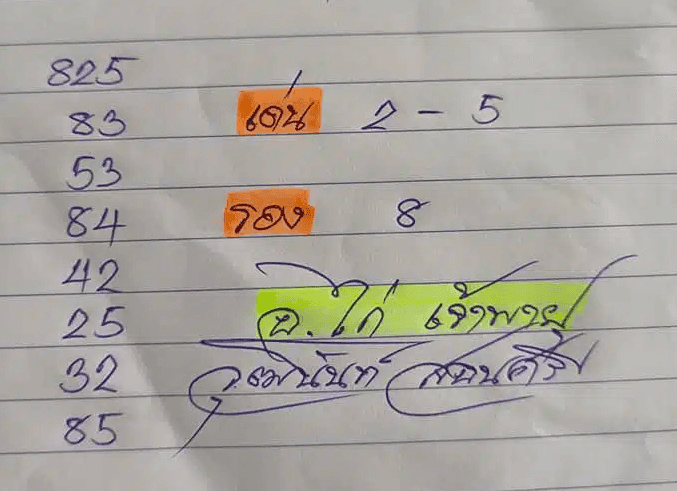 825
83 เด่น 2 - 5
53
84 รอง 8
42
25 อ. ไก่ เจ้าพายุ
32 วุฒินันท์
85